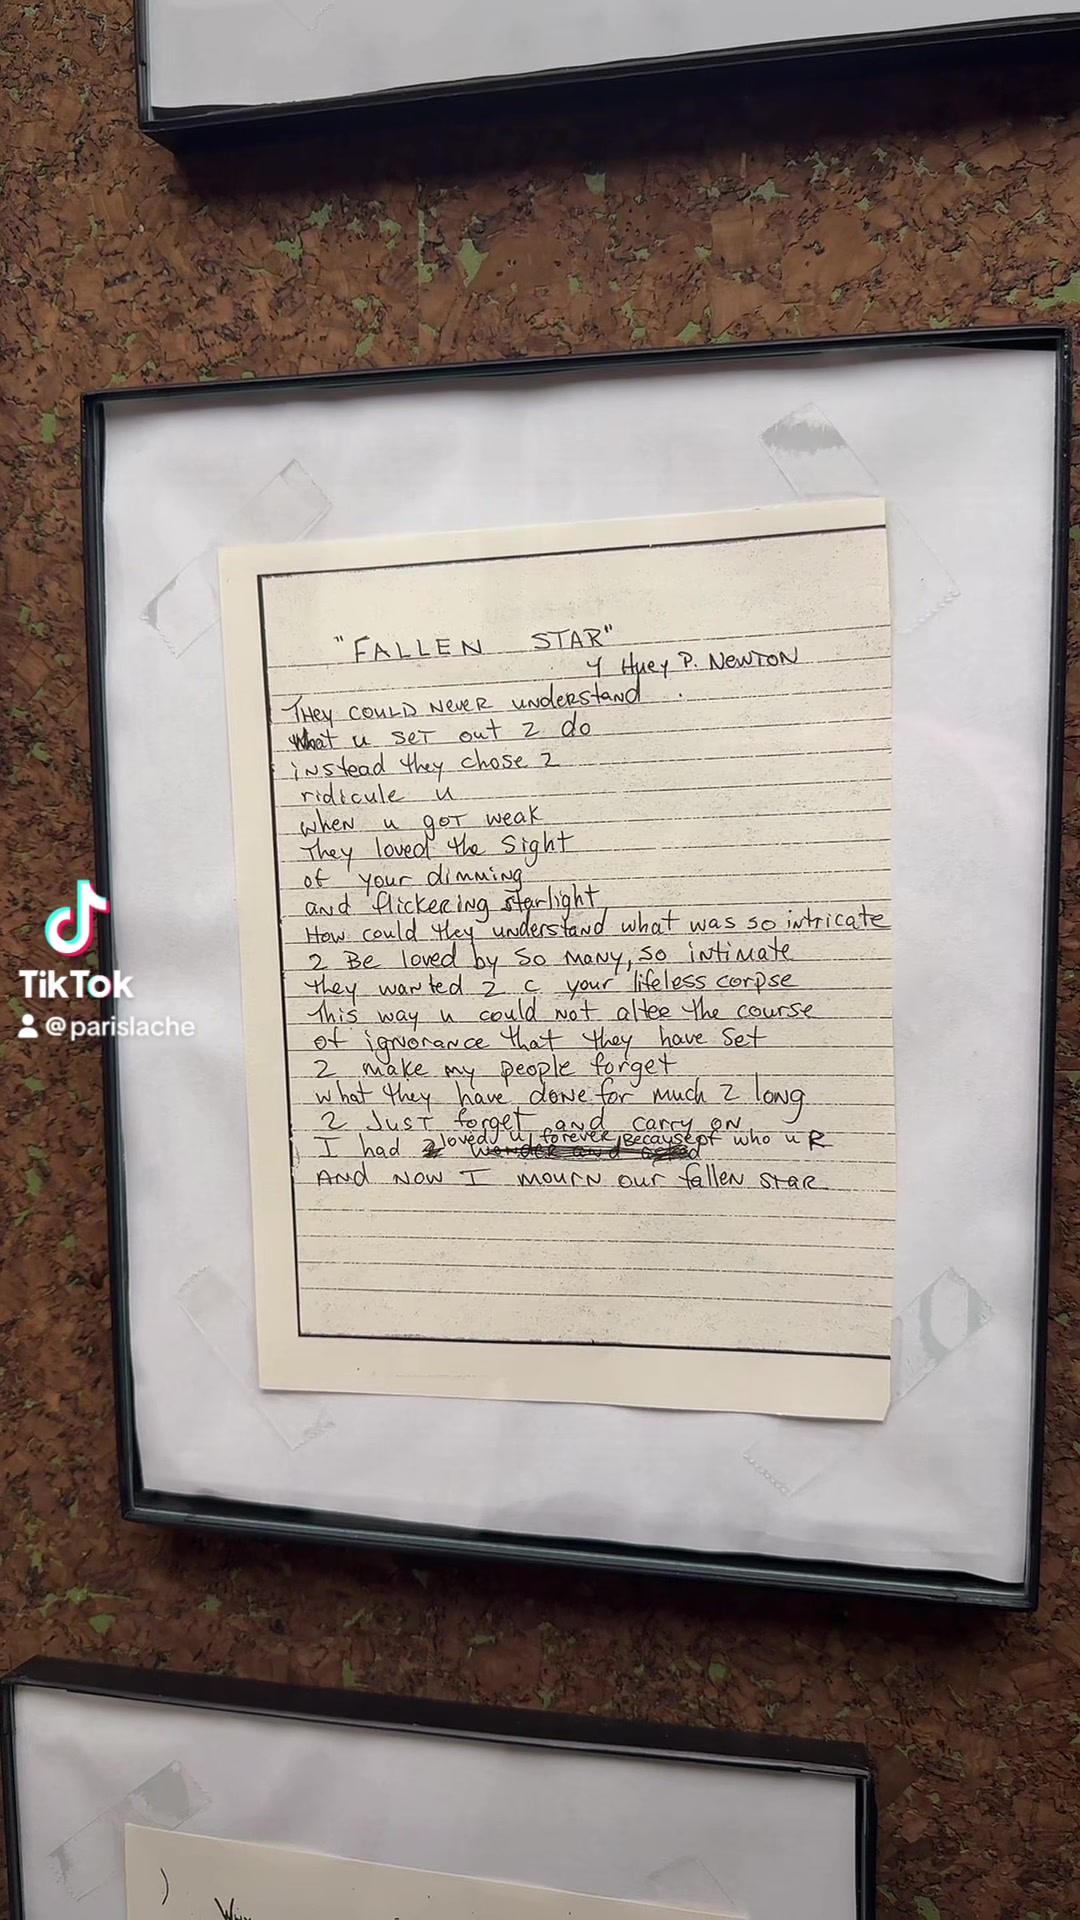 "FALLEN STAR"
4 Huey P. NEWTON
They COULD NEVER understand
What u SET out 2 do
instead they chose 2
ridicule u
when u got weak
They loved the Sight
of your dimming
and flickering starlight
How could they understand what was so intricate
2 Be loved by So many, so intimate
they wanted 2 c your lifeless corpse
This way u could not alter the course
of ignorance that they have set
2 make my people forget
what they have done for much 2 long
2 Just forget and carry on
I had loved u forever Because of who u R
AND NOW I mourn our fallen star
TikTok
@parislache